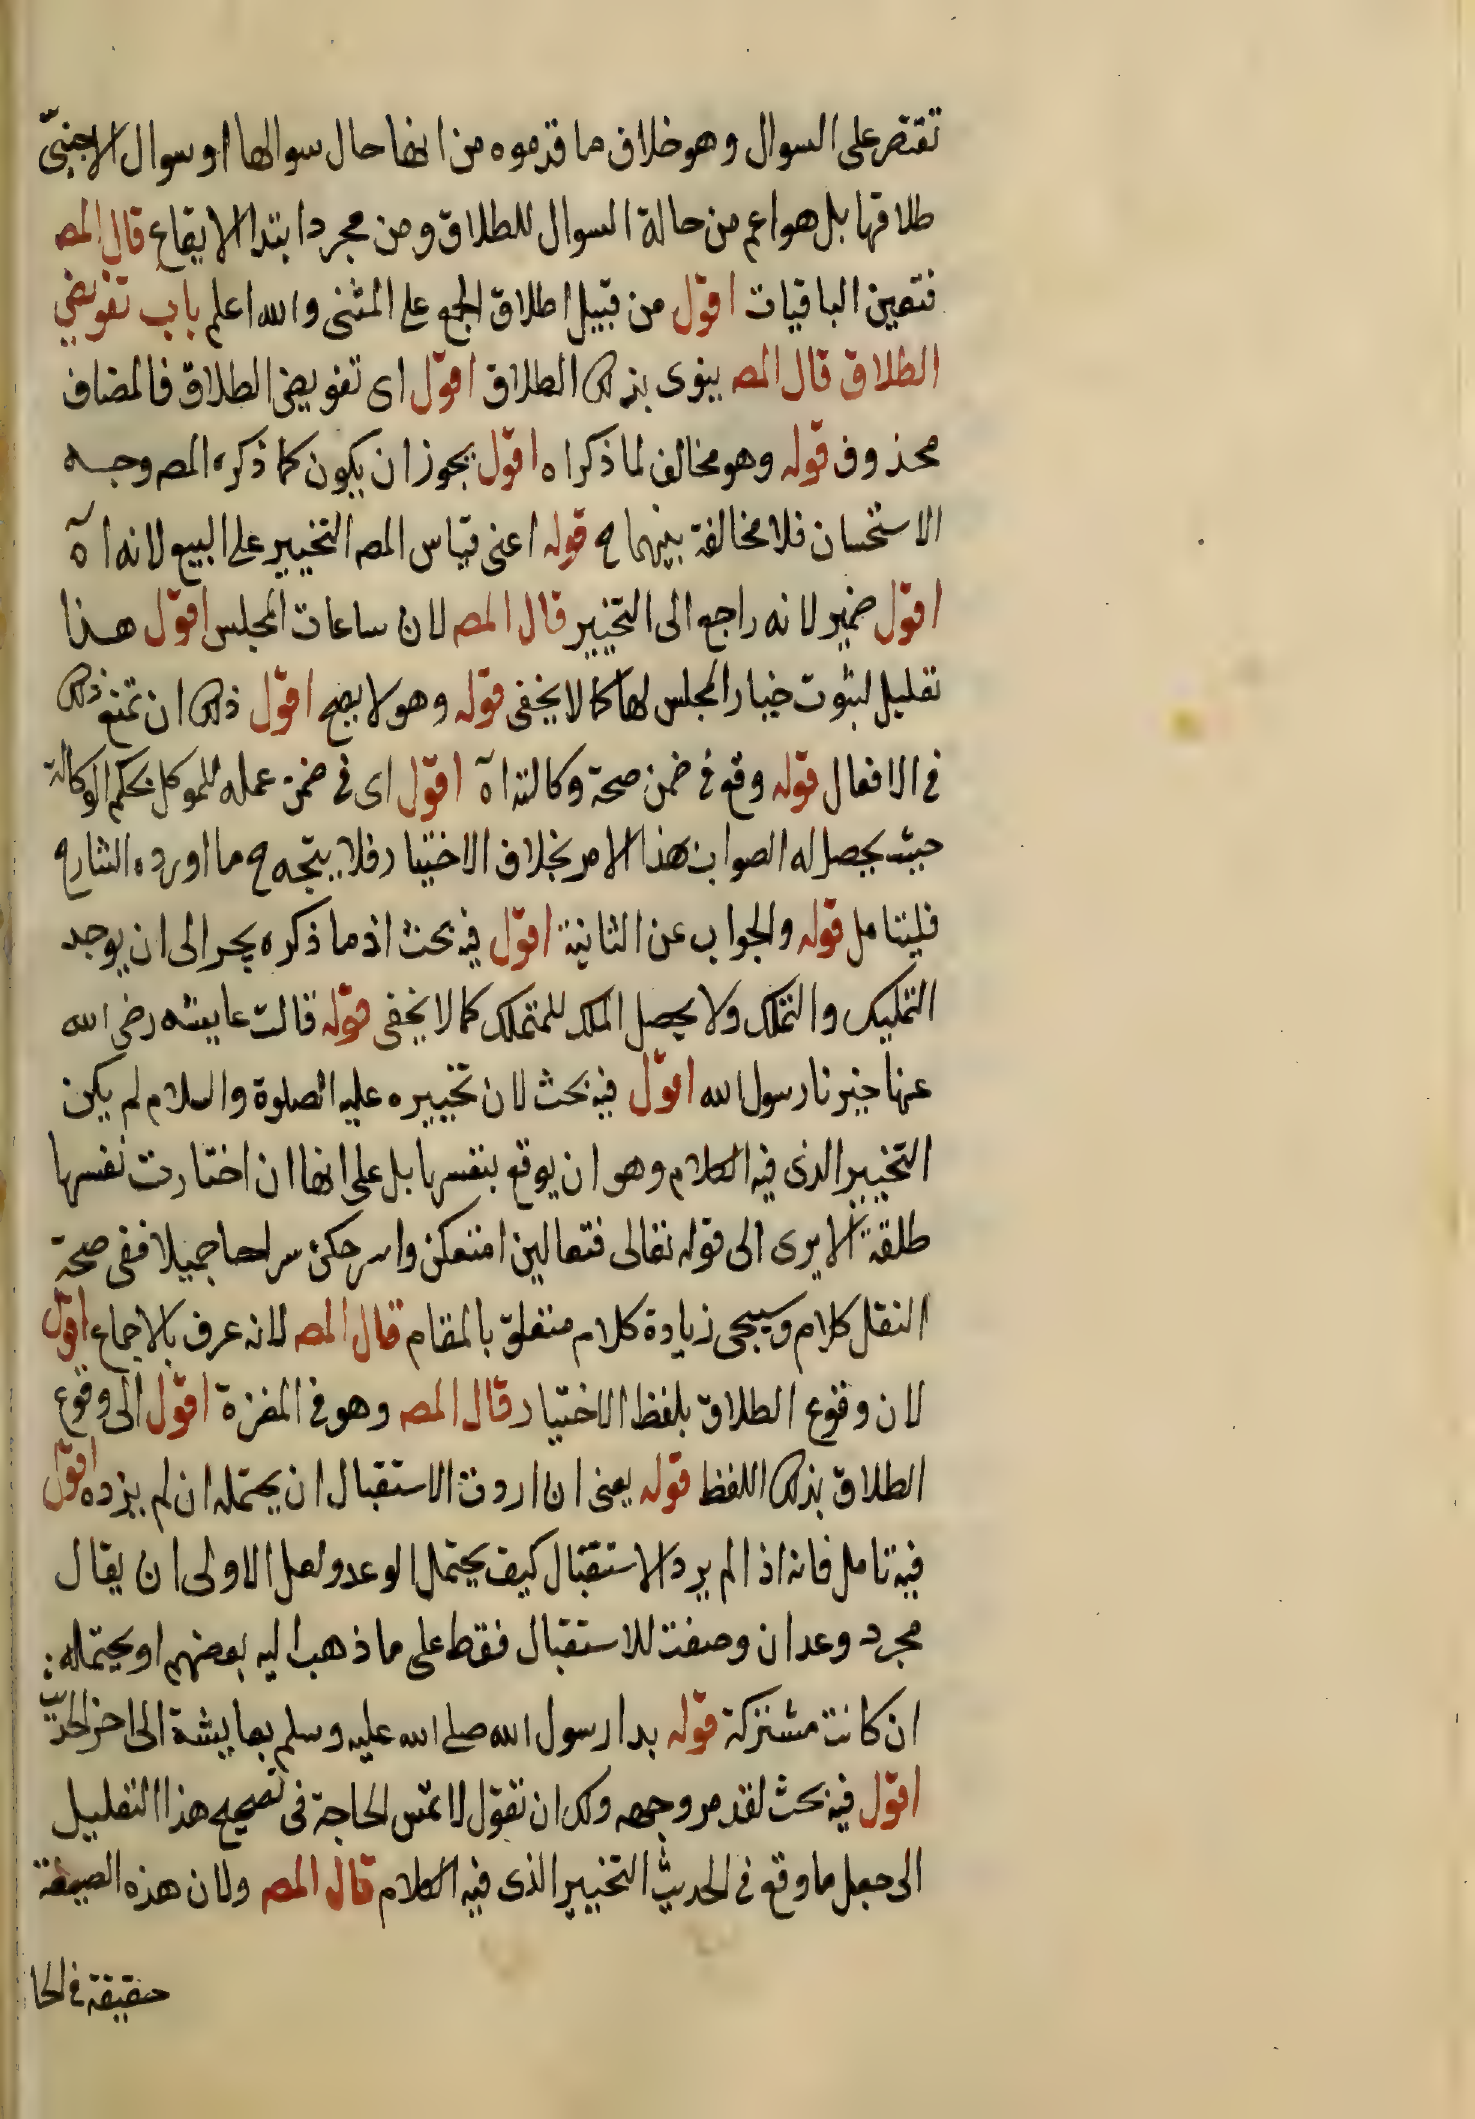 تقتصر على السوال وهو خلاف ما قدموه من انها حال سوالها او سوال الاجنبيّ
طلاقها بل هو اعم من حالة السوال للطلاق ومن مجرد ابتدا الايقاع قال المص
فتعين الباقيات اقول من قبيل اطلاق الجمع على المثنى والله اعلم باب تفويض
الطلاق قال المص ينوى بذلك الطلاق اقول اى تفويض الطلاق فالمضاف
محذوف قوله وهو مخالف لما ذكرا ه اقول يجوز ان يكون كما ذكره المص وجه
الاستحسان فلا مخالفة بينهما ح قوله اعنى قياس المص التخيير على البيع لانه اه
اقول ضمير لانه راجع الى التخيير قال المص لان ساعات المجلس اقول هذا
تعليل لثبوت خيار المجلس لها كما لا يخفى قوله وهو لا يصح اقول ذلك ان تمنع ذلك
فى الافعال قوله وقع فى ضمن صحة وكالته اه اقول اى فى ضمن عمله للموكل بحكم الوكالة
حيث يحصل له الصواب هذا الامر بخلاف الاختيار فلا يتجه ح ما اورده الشارح
فليتامل قوله والجواب عن الثانية اقول فيه بحث اذ ما ذكره يجر الى ان يوجد
التمليك والتملك ولا يحصل الملك للمتملك كما لا يخفى قوله قالت عايشه رضى الله
عنها خيرنا رسول الله اقول فيه بحث لان تخييره عليه الصلوة والسلام لم يكن
التخيير الذى فيه الكلام وهو ان يوقع بنفسها بل على انها ان اختارت نفسها
طلقة الا يرى الى قوله تعالى فتعالين امتعكن واسرحكن سراحا جميلا ففى صحة
النقل كلام وسيجى زيادة كلام متعلق بالمقام قال المص لانه عرف بالاجماع اقول
لان وقوع الطلاق بلفظ الاختيار قال المص وهو فى المفسرة اقول الى وقوع
الطلاق بذلك اللفظ قوله يعنى ان اردت الاستقبال ان يحتمله ان لم يرده اقول
فيه تامل فانه اذا لم يرد الاستقبال كيف يحتمل الوعد ولعل الاولى ان يقال
مجرد وعد ان وصفت للاستقبال فقط على ما ذهب اليه بعضهم او يحتمله :
ان كانت مشتركة قوله بدا رسول الله صلى الله عليه وسلم بعايشة الى اخر الحديث
اقول فيه بحث لقد مر وجهه ولك ان تقول لا تمس الحاجة فى تصحيح هذا التعليل
الى جعل ما وقع فى الحديث التخيير الذى فيه الكلام قال المص ولان هذه الصيغة
حقيقة فى الحا